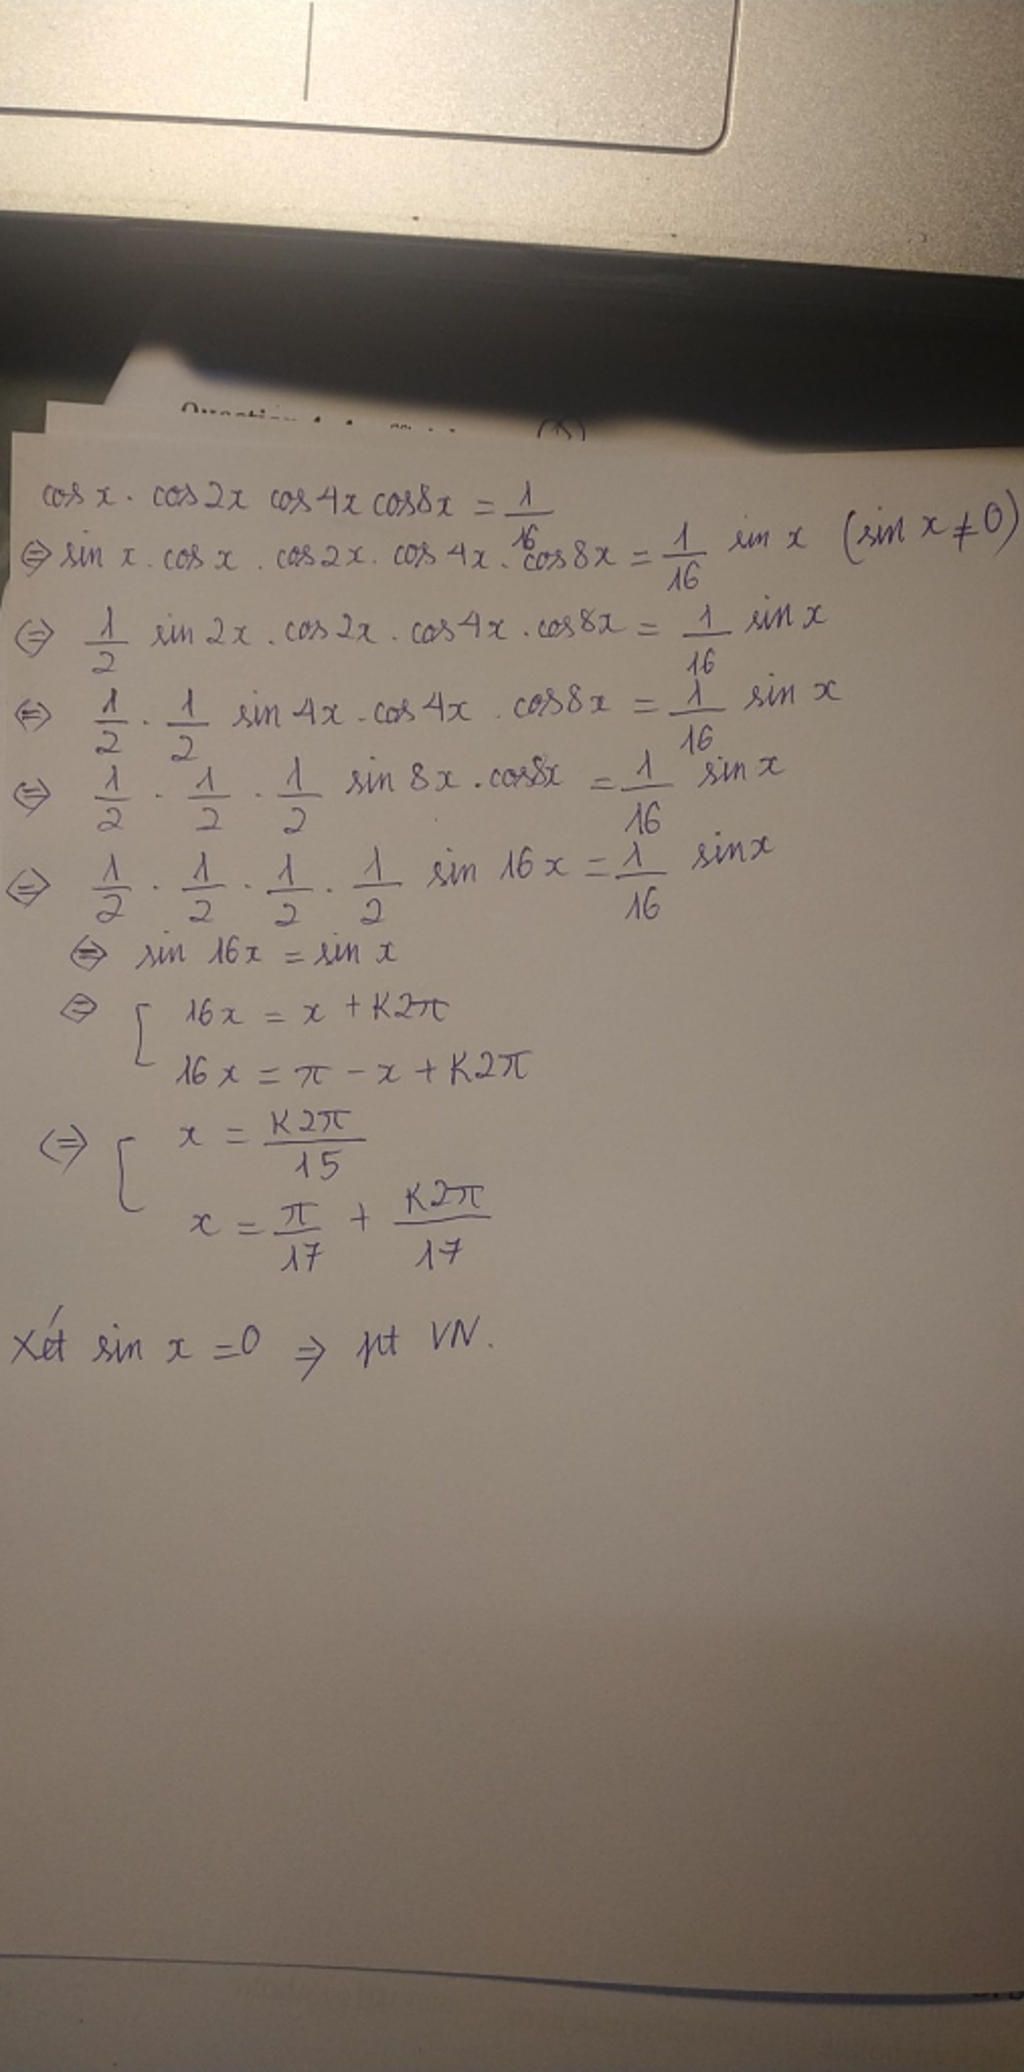 cos x . cos 2x cos 4x cos 8x = 1/16
⇔ sin x . cos x . cos 2x . cos 4x . cos 8x = 1/16 sin x (sin x ≠ 0)
⇔ 1/2 sin 2x . cos 2x . cos 4x . cos 8x = 1/16 sin x
⇔ 1/2 . 1/2 sin 4x . cos 4x . cos 8x = 1/16 sin x
⇔ 1/2 . 1/2 . 1/2 sin 8x . cos 8x = 1/16 sin x
⇔ 1/2 . 1/2 . 1/2 . 1/2 sin 16x = 1/16 sin x
⇔ sin 16x = sin x
⇔ [ 16x = x + K2π
16x = π - x + K2π
⇔ [ x = K2π/15
x = π/17 + K2π/17
Xét sin x = 0 ⇒ pt VN.